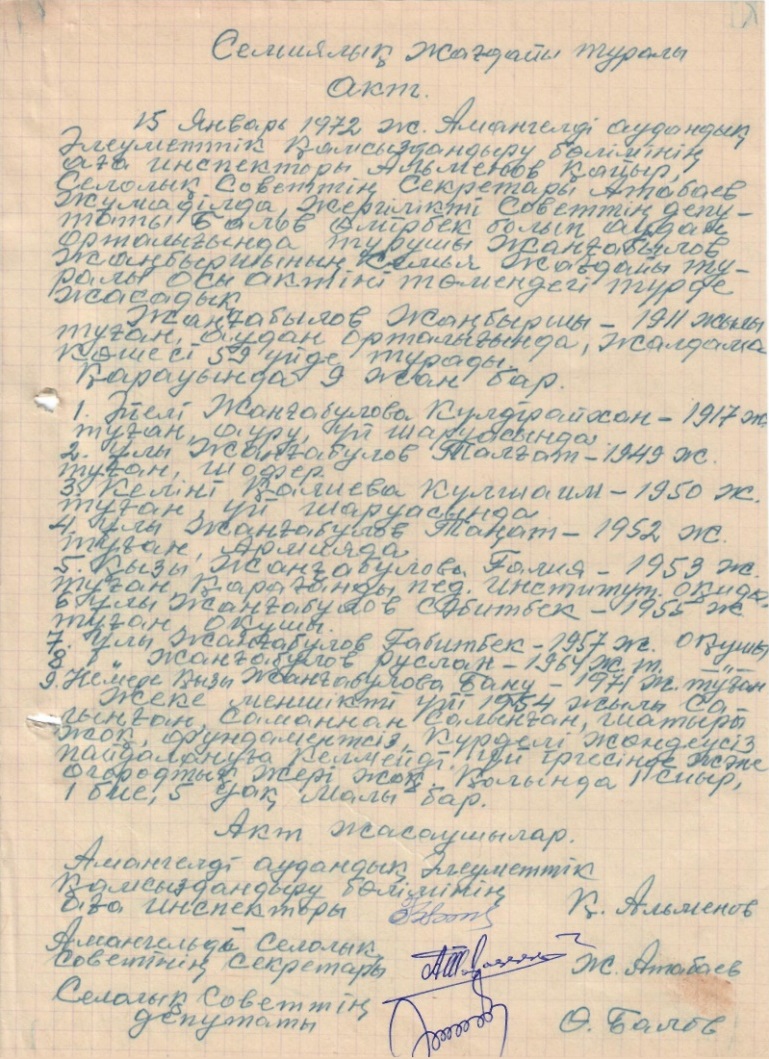 Семиялық жағдайы туралы
акт.
15 Январь 1972 ж. Амангелді аудандық
әлеуметтік қамсыздандыру бөлімінің
аға инспекторы Альменов Қапыр,
Селолық Советтің Секретары Атабаев
Жумаділда жергілікті Советтің депу-
таты Балов Өмірбек болып аудан
орталығында турушы Жанғабылов
Жаңбыршының семья жағдайы ту-
ралы осы актіні төмендегі түрде
жасадық
Жанғабылов Жаңбыршы - 1911 жылы
туған, аудан орталығында, Жалдама
көшесі 59 үйде турады.
Қарауында 9 жан бар.
1. Әйелі Жанғабулова Кулдірайхан - 1917 ж.
туған, ауру, үй шаруасында
2. Улы Жанғабулов Талғат - 1949 ж.
туған, шофер
3. Келіні Қалиева Кулшаим - 1950 ж.
туған, үй шаруасында
4. Улы Жанғабулов Таңат - 1952 ж.
туған, Армияда
5. Кызы Жанғабулова Ғалия - 1953 ж.
туған Қарағанды пед. институт. оқиды.
6 улы Жанғабулов Сәбитбек - 1955 ж
туған, окушы.
7. Улы Жанғабулов Ғабитбек - 1957 ж. оқушы
8. " Жанғабулов Руслан - 1964 ж. т. - " -
9. Немере қызы Жанғабулова Бану - 1971 ж. туған
Жеке меншікті үйі 1954 жылы са
лынған, саманнан салынған, шатыры
жоқ, фундаментсіз, күрделі жөндеусіз
пайдалануға келмейді. Үй іргесінде және
огородтық жері жоқ. Қолында 1 сиыр,
1 бие, 5 уақ малы бар.
Акт жасаушылар.
Амангелді аудандық әлеуметтік
қамсыздандыру бөлімінің
аға инспекторы Қ. Альменов
Амангельді селолық
советінің секретары Ж. Атабаев
Селолық советтің
депутаты Ө. Балов